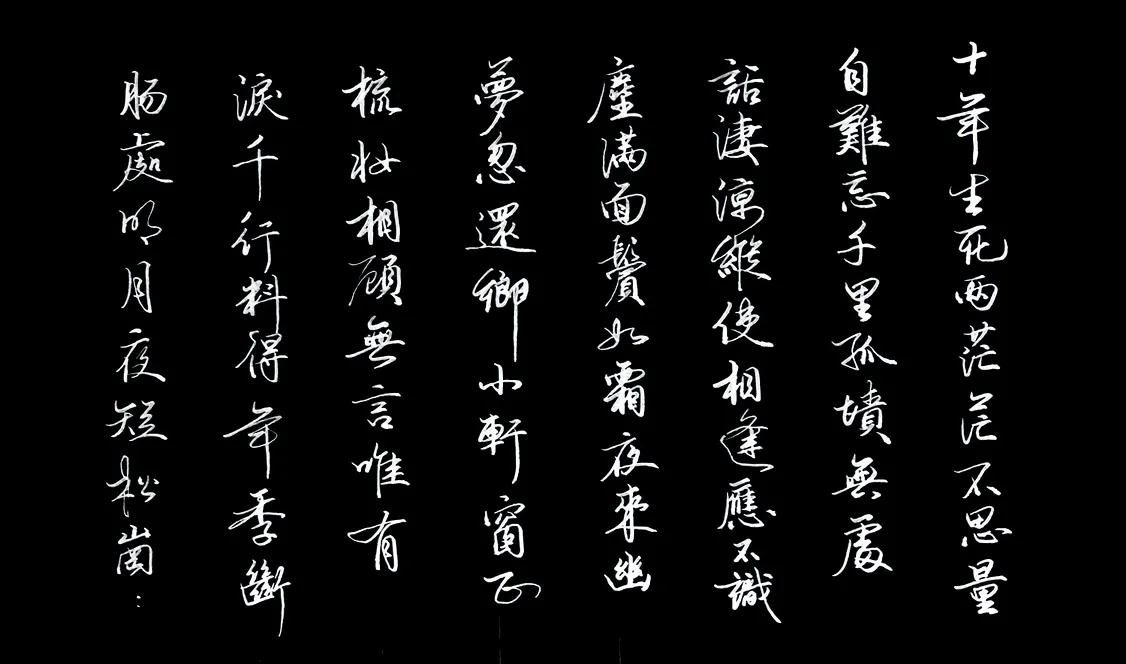 十年生死兩茫茫不思量
自難忘千里孤墳無處
話淒涼縱使相逢應不識
塵滿面鬢如霜夜來幽
夢忽還鄉小軒窗正
梳妝相顧無言唯有
淚千行料得年季斷
腸處明月夜短松崗: